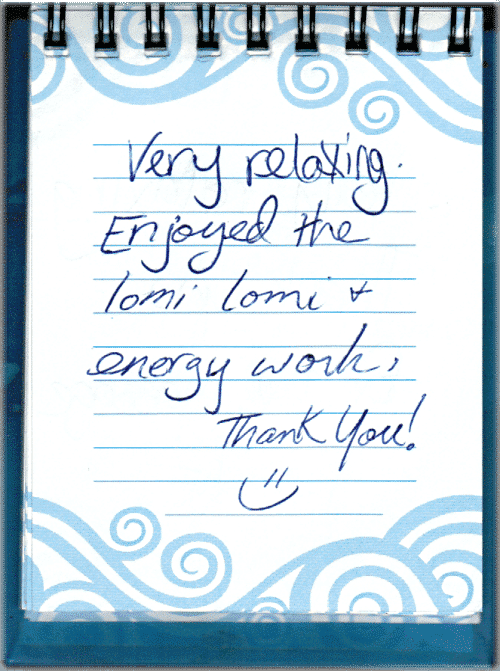 Very relaxing.
Enjoyed the
lomi lomi +
energy work.
Thank You!